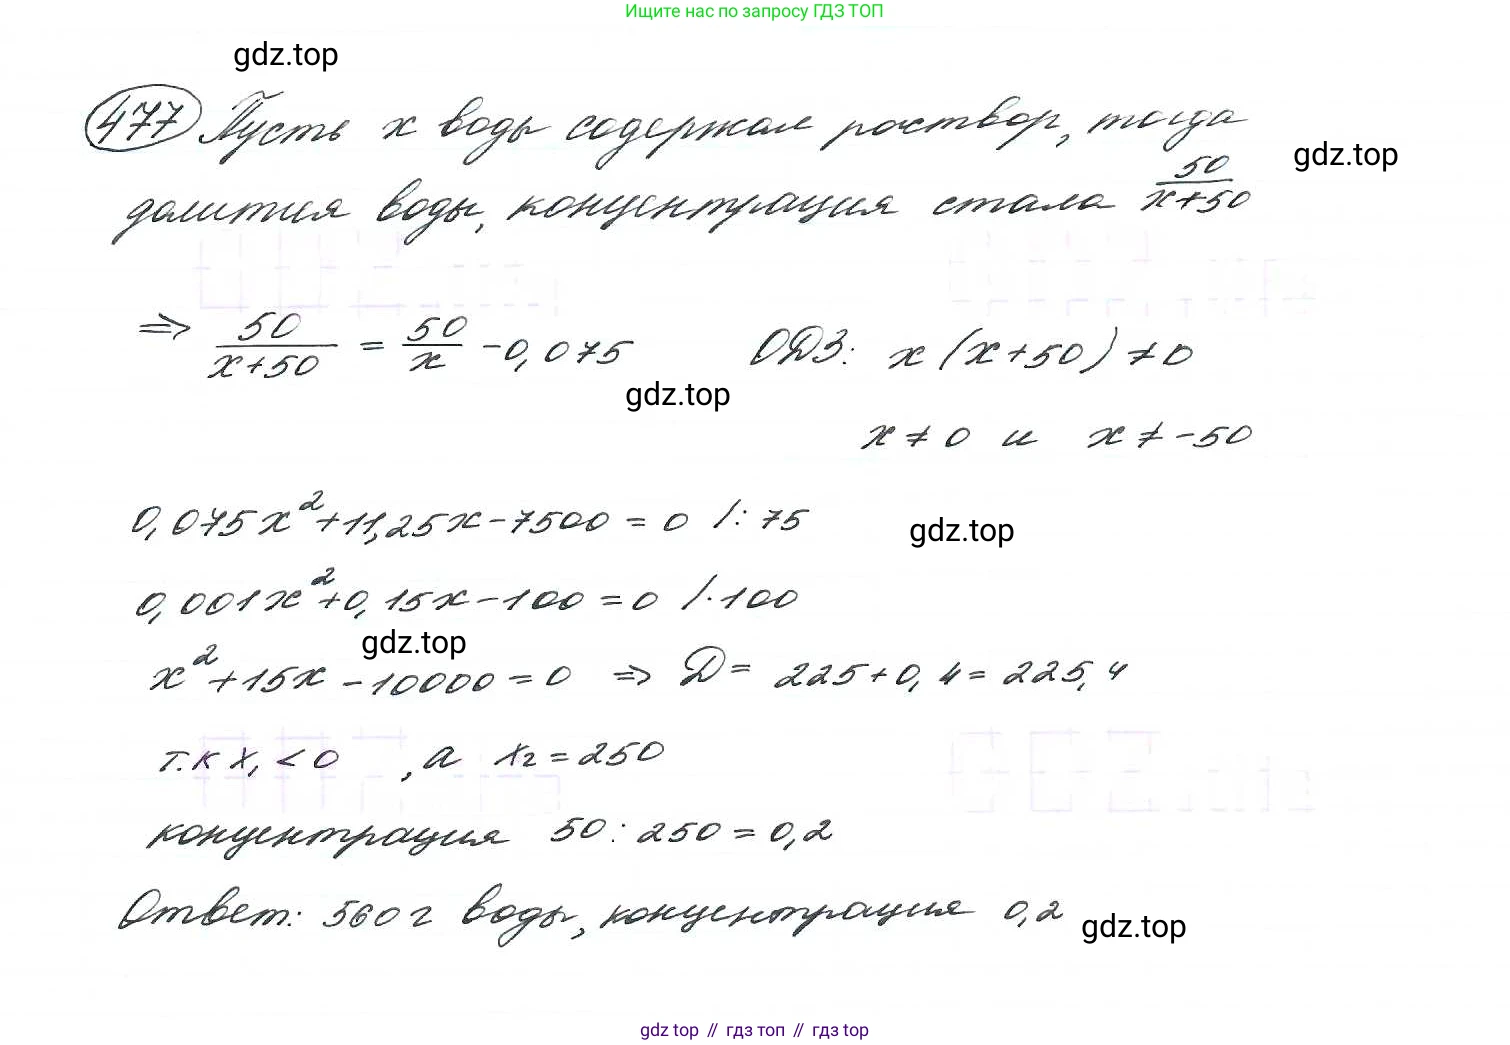 Ищите нас по запросу ГДЗ ТОП
gdz.top
477 Пусть x воды содержал раствор, тогда
gdz.top
долития воды, концентрация стала 50/(x+50)
⇒ 50/(x+50) = 50/x - 0,075 ОДЗ: x(x+50) ≠ 0
gdz.top
x ≠ 0 и x ≠ -50
0,075x² + 11,25x - 7500 = 0 /: 75
gdz.top
0,001x² + 0,15x - 100 = 0 /· 100
gdz.top
x² + 15x - 10000 = 0 ⇒ Д = 225 + 0,4 = 225,4
т.к x₁ < 0, а x₂ = 250
концентрация 50 : 250 = 0,2
Ответ: 560 г воды, концентрация 0,2
gdz.top
gdz top // гдз топ // гдз top